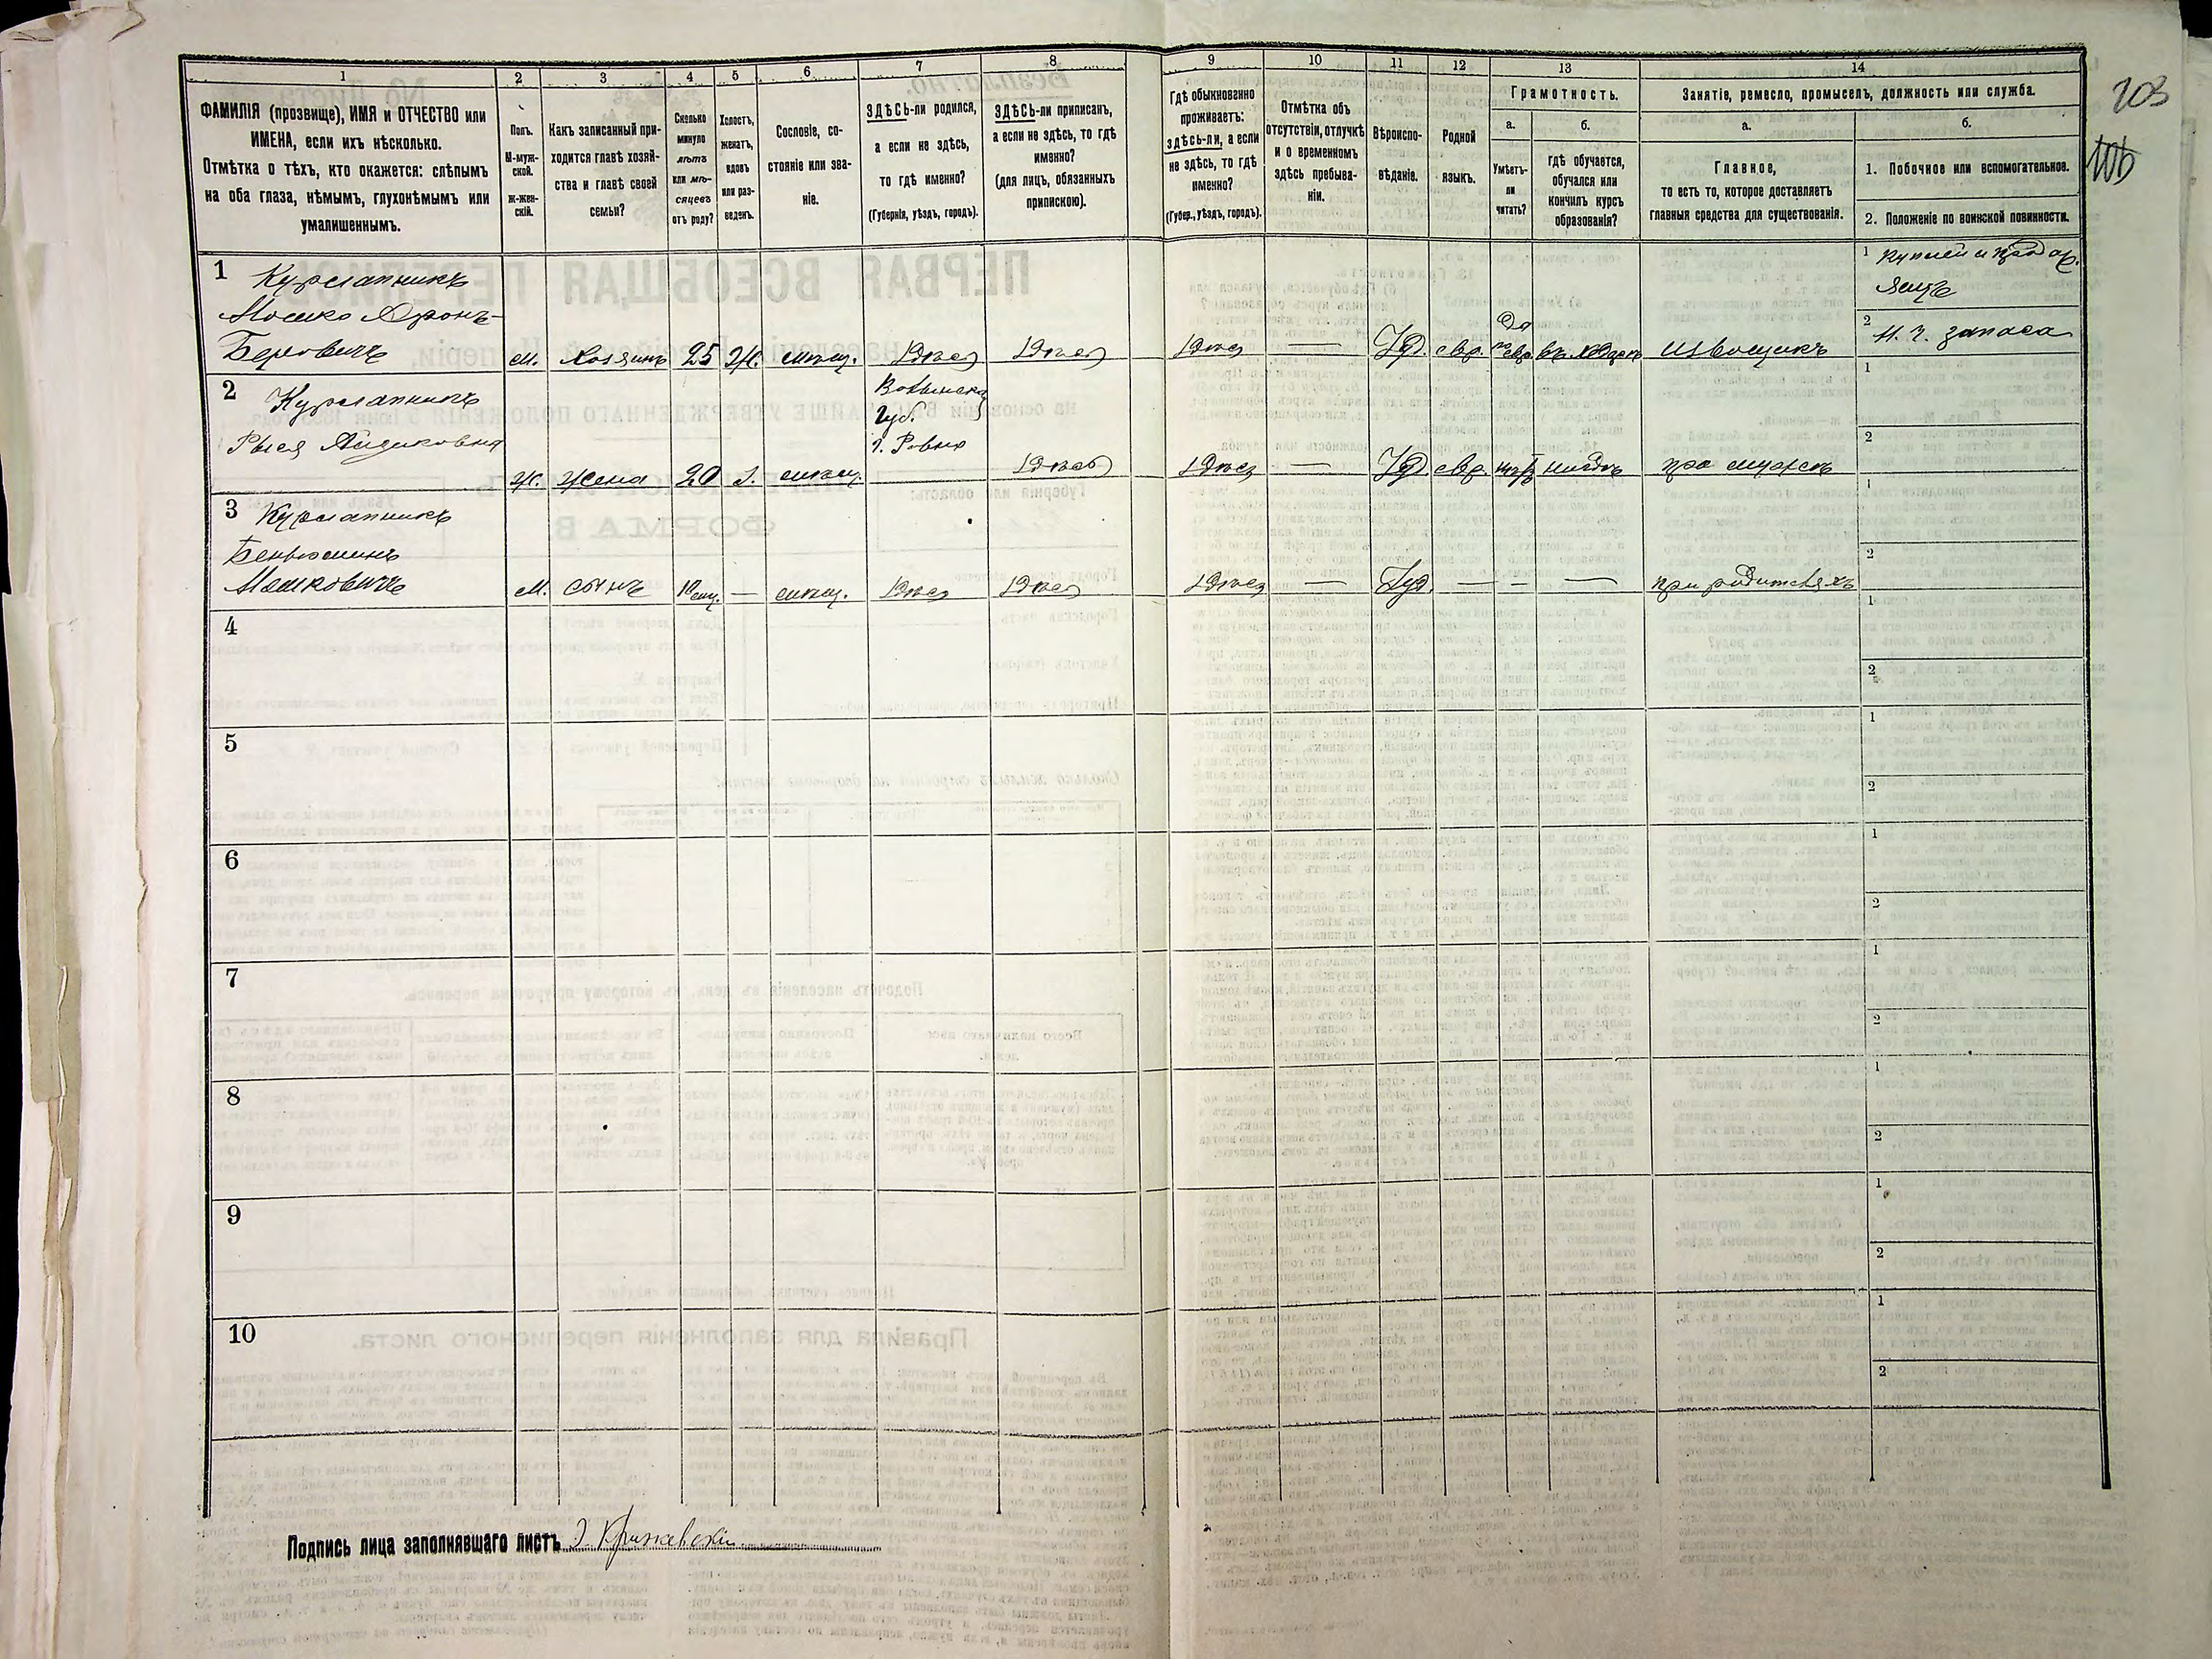 203
105
1 2 3 4 5 6 7 8 9 10 11 12 13 14
ФАМИЛІЯ (прозвище), ИМЯ и ОТЧЕСТВО или
ИМЕНА, если ихъ нѣсколько.
Отмѣтка о тѣхъ, кто окажется: слѣпымъ
на оба глаза, нѣмымъ, глухонѣмымъ или
умалишеннымъ.
Полъ.
М-муж-
ской.
Ж-жен-
скій.
Какъ записанный при-
ходится главѣ хозяй-
ства и главѣ своей
семьи?
Сколько
минуло
лѣтъ
или мѣ-
сяцевъ
отъ роду?
Холостъ,
женатъ,
вдовъ
или раз-
веденъ.
Сословіе, со-
стояніе или зва-
ніе.
ЗДѢСЬ-ли родился,
а если не здѣсь,
то гдѣ именно?
(Губернія, уѣздъ, городъ).
ЗДѢСЬ-ли приписанъ,
а если не здѣсь, то гдѣ
именно?
(для лицъ, обязанныхъ
припискою).
Гдѣ обыкновенно
проживаетъ:
здѣсь-ли, а если
не здѣсь, то гдѣ
именно?
(Губер., уѣздъ, городъ).
Отмѣтка объ
отсутствіи, отлучкѣ
и о временномъ
здѣсь пребыва-
ніи.
Вѣроиспо-
вѣданіе.
Родной
языкъ.
Грамотность.
а.
Умѣетъ-
ли
читать?
б.
гдѣ обучается,
обучался или
кончилъ курсъ
образованія?
Занятіе, ремесло, промыселъ, должность или служба.
а.
Главное,
то есть то, которое доставляетъ
главныя средства для существованія.
б.
1. Побочное или вспомогательное.
2. Положеніе по воинской повинности.
1 Курслапникъ
Мошко Аронъ-
Беровичъ
м. Хозяинъ 25 ж. мѣщ. Здѣсь Здѣсь
Здѣсь — Іуд. евр. Да
по евр. въ хедерѣ извощикъ
1
яицъ
2 Н. Ч. запаса
2 Курслапникъ
Рыся Айзиковна
ж. жена 20 з. мѣщ.
Волынск.
Губ.
г. Ровно
Здѣсь
Здѣсь — Іуд. евр. нѣтъ при мужѣ
1
2
3 Курслапникъ
Беньюминъ
Мошковичъ
м. сынъ — мѣщ. Здѣсь Здѣсь
Здѣсь — Іуд. — — — при родителяхъ
1
2
4
1
2
5
1
2
6
1
2
7
1
2
8
1
2
9
1
2
10
1
2
Подпись лица заполнявшаго листъ Э. Крижевскій